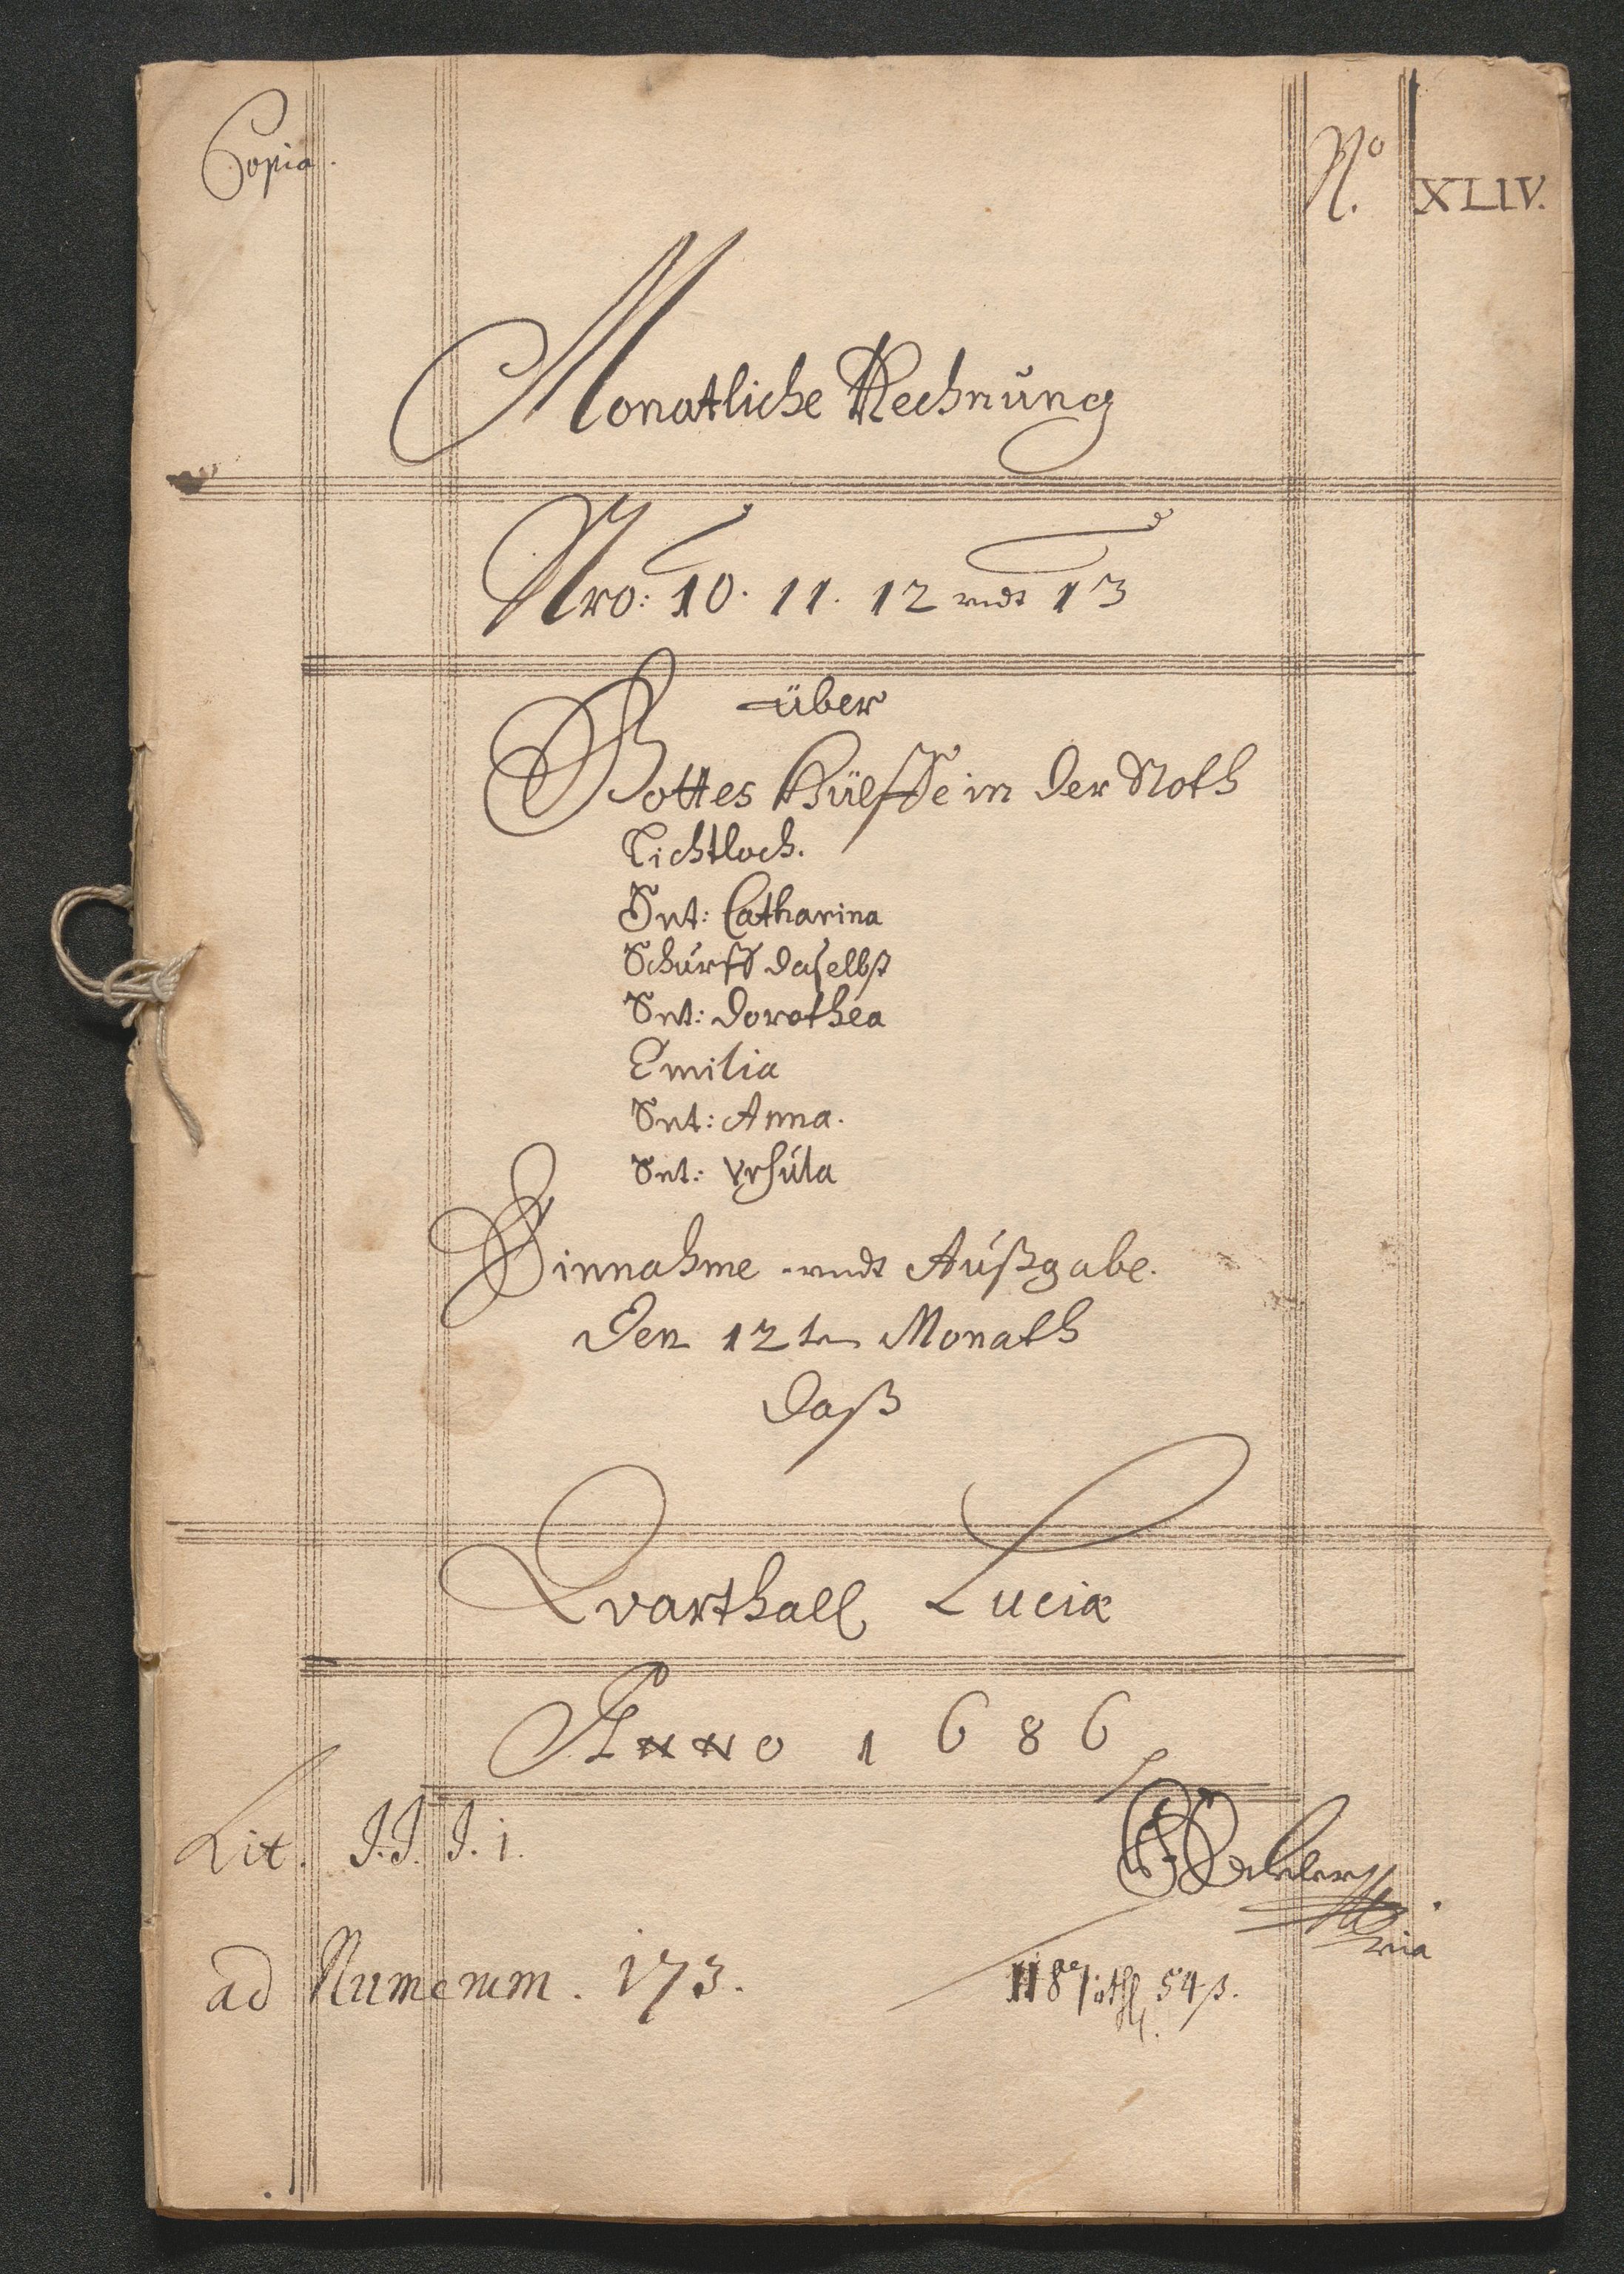 Copia.
No. XLIV.
Monatliche Rechnung
Nro: 10. 11. 12 undt 13
über
Gottes Hülffe in der Noth
Lichtloch.
Snt: Catharina
Schurff daselbst
Snt: Dorothea
Emilia
Snt: Anna.
Snt: Ursula
Einnahme undt Außgabe.
Den 12ten Monath
Daß
Qvarthall Luciæ
Anno 1686
Lit. J.J.J.i.
mria
ad Numerum. 173.
54 ß.